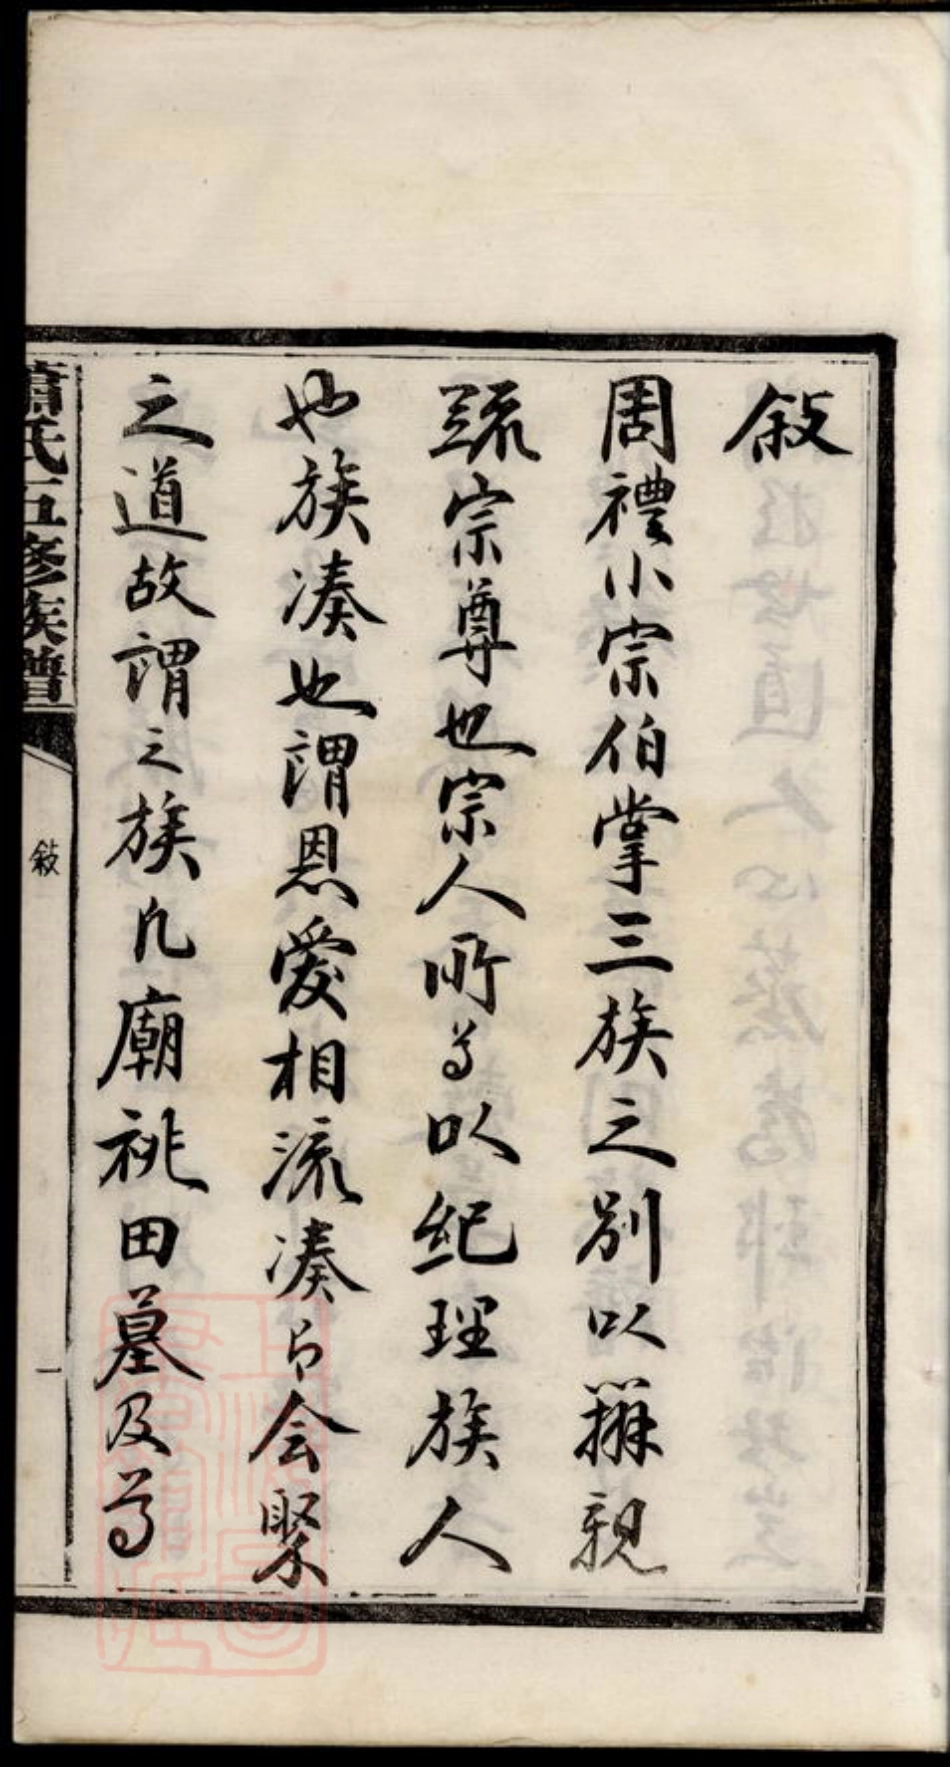 敘
周禮小宗伯掌三族之別以辨親
疏宗尊也宗人所尊以紀理族人
也族湊也謂恩愛相流湊也會聚
之道故謂之族凡廟祧田墓及尊
蕭氏五修族譜
敘
一